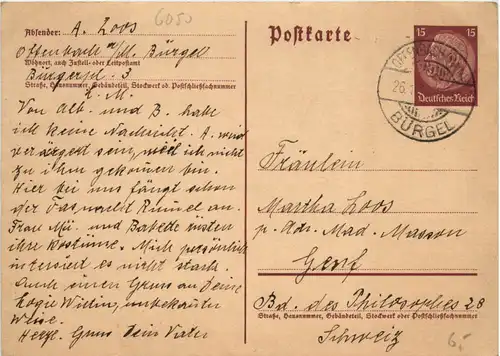 6050
Absender: A. Loos
Offenbach a/M. Bürgel
Wohnort, auch Zustell- oder Leitpostamt
Bürgerpl. 3
Straße, Hausnummer, Gebäudeteil, Stockwerk od. Postschließfachnummer
L. M.
Von Alb. und B. habe
ich keine Nachricht. A. wird
verärgert sein, weil ich nicht
zu ihm gekommen bin.
Hier bei uns fängt schon
der Fastnacht Rummel an.
Frau Mü. und Babette rüsten
ihre Kostüme. Mich persönlich
intersiert es nicht stark.
Auch einen Gruss an Deine
Logie Wirtin, unbekannter
Weise.
Herzl. Gruss Dein Vater
Postkarte
15 15
Deutsches Reich
OFFENBACH
26.
BÜRGEL
Fräulein
Martha Loos
p. Adr. Mad. Masson
Genf
Bd. des Philosophes 28
Straße, Hausnummer, Gebäudeteil, Stockwerk oder Postschließfachnummer
Schweiz
6,-